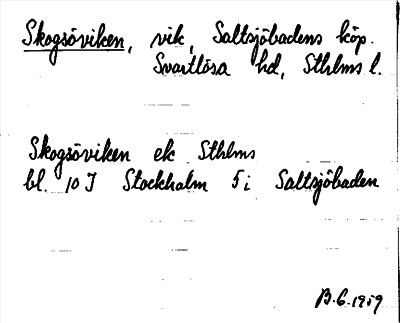 Skogsöviken, vik, Saltsjöbadens köp.
Svartlösa hd, Sthlms l.
Skogsöviken ek Sthlms
bl. 10 I Stockholm 5 i Saltsjöbaden
B.G. 1959